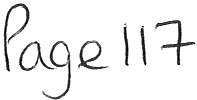 Page 117